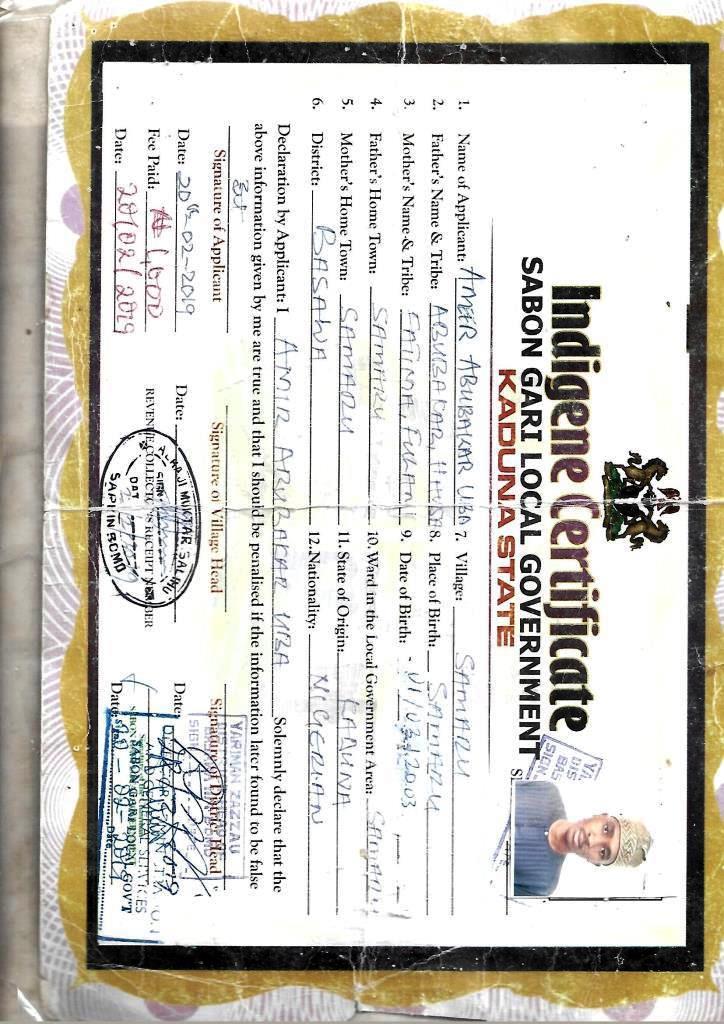 Indigene Certificate
SABON GARI LOCAL GOVERNMENT
KADUNA STATE
1. Name of Applicant: AMIR ABUBAKAR UBA 7. Village: SAMARU
2. Father's Name & Tribe: ABUBAKAR, HAUSA 8. Place of Birth: SAMARU
3. Mother's Name & Tribe: FATIMA, FULANI 9. Date of Birth: 01/03/2003
4. Father's Home Town: SAMARU 10. Ward in the Local Government Area: SAMARU
5. Mother's Home Town: SAMARU 11. State of Origin: KADUNA
6. District: BASAWA 12. Nationality: NIGERIAN
Declaration by Applicant: I AMIR ABUBAKAR UBA Solemnly declare that the
above information given by me are true and that I should be penalised if the information later found to be false
Signature of Applicant Signature of Village Head Signature of District Head
Date: 20th-02-2019 Date: Date:
Fee Paid: ₦1,000 REVENUE COLLECTOR'S RECEIPT NUMBER
Date: 20/02/2019 Date:
ALHAJI MUKTAR SALIHU
SIGN
DAT
SARKIN BOMO
YARIMAN ZAZZAU
SABON GARI LOCAL GOV'T